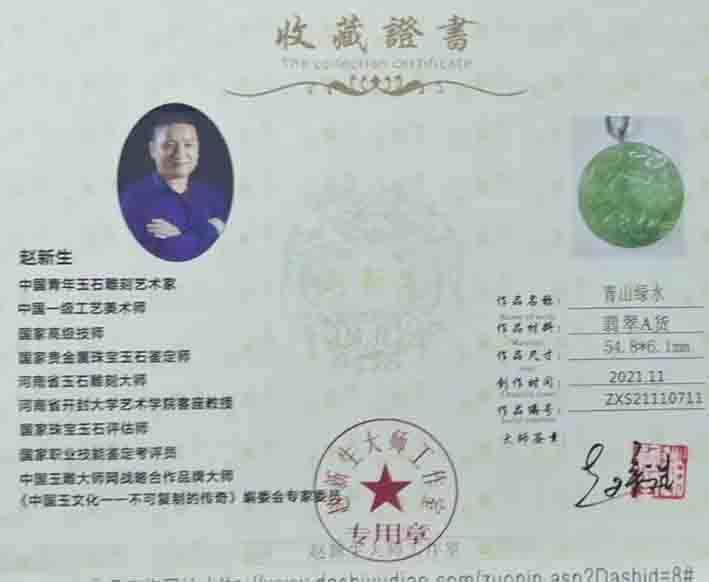 收藏證書
The collection certificate
赵新生
中国青年玉石雕刻艺术家
中国一级工艺美术师
国家高级技师
国家贵金属珠宝玉石鉴定师
河南省玉石雕刻大师
河南省开封大学艺术学院客座教授
国家珠宝玉石评估师
国家职业技能鉴定考评员
中国玉雕大师网战略合作品牌大师
《中国玉文化一一不可复制的传奇》编委会专家委员
作品名称： 青山绿水
作品材料： 翡翠A货
作品尺寸： 54.8*6.1mm
创作时间： 2021.11
作品编号： ZXS21110711
大师签章：
赵新生大师工作室
专用章
赵新生大师工作室